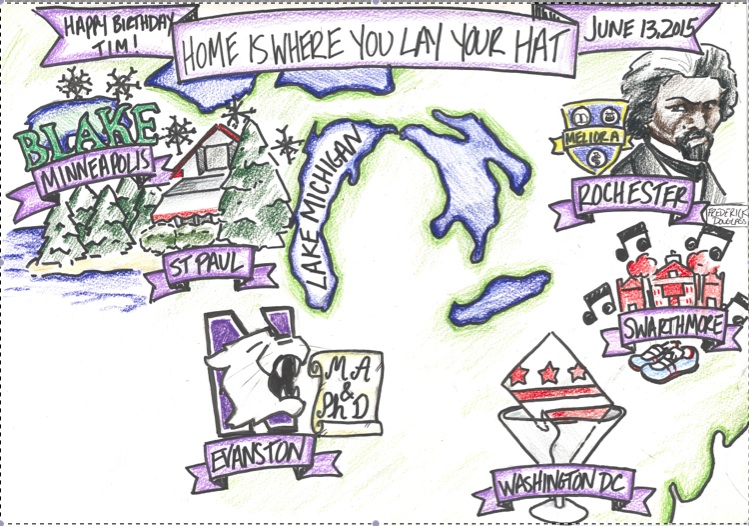 HAPPY BIRTHDAY
TIM!
HOME IS WHERE YOU LAY YOUR HAT
JUNE 13, 2015
BLAKE
MINNEAPOLIS
ST PAUL
LAKE MICHIGAN
MELIORA
ROCHESTER
FREDERICK
DOUGLASS
SWARTHMORE
N
MA
&
PhD
EVANSTON
WASHINGTON DC